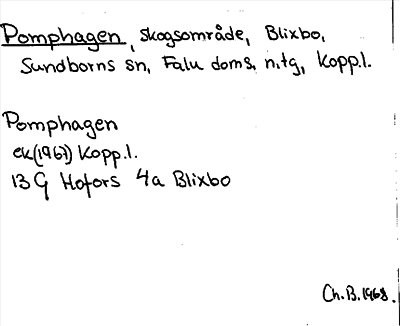 Pomphagen, skogsområde, Blixbo,
Sundborns sn, Falu doms. n. tg, Kopp. l.
Pomphagen
ek(1967) Kopp. l.
13 G Hofors 4a Blixbo
Ch. B. 1968.